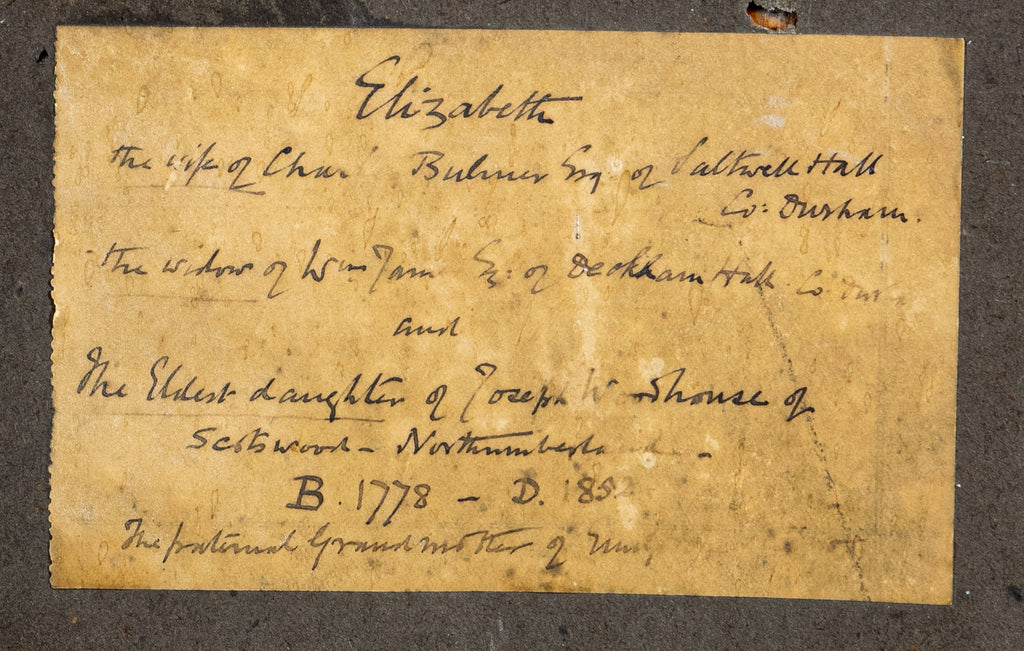 Elizabeth
the wife of Char Bulmer Esq of Saltwell Hall
Co: Durham.
the widow of Wm Esq: of Deckham Hall Co
and
The Eldest daughter of Joseph Woodhouse of
Scotswood - Northumberland -
B. 1778 - D. 1852
The paternal Grandmother of